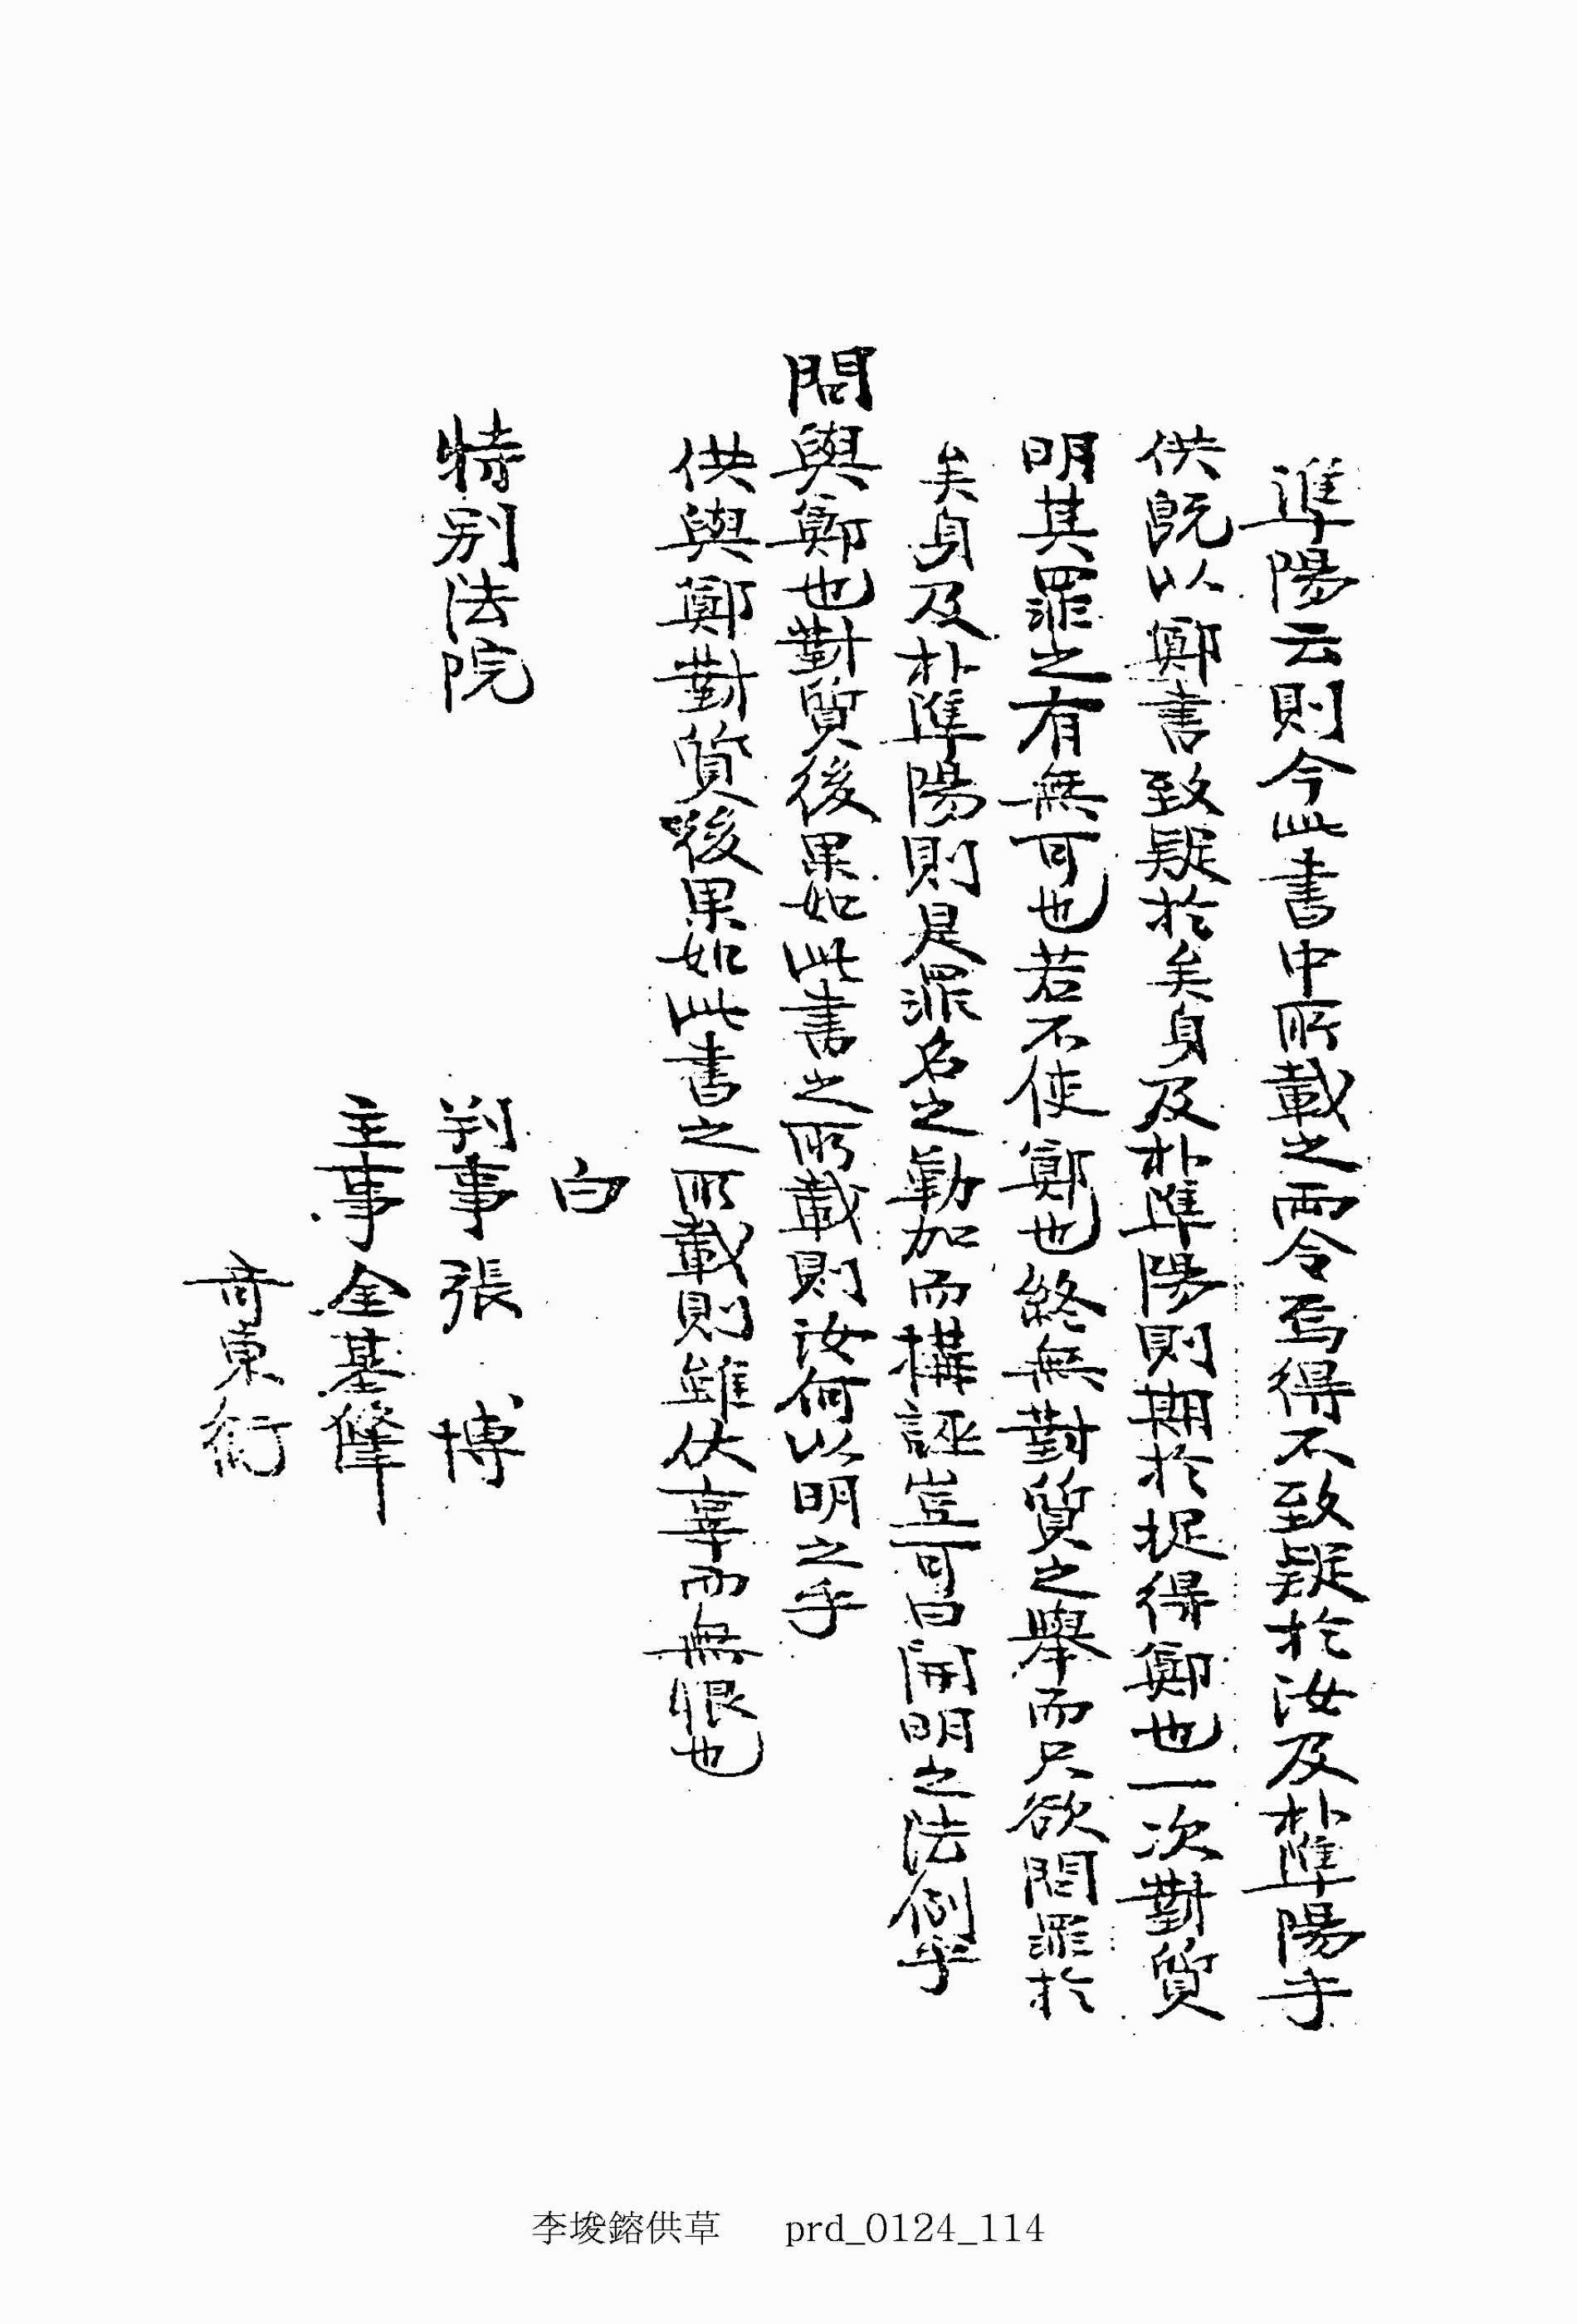 準陽云則今此書中所載之兩令焉得不致疑於汝及朴準陽乎
供旣以鄭書致疑於矣身及朴準陽則期於捉得鄭也一次對質
明其罪之有無可也若不使鄭也終無對質之擧而只欲問罪於
矣身及朴準陽則是罪名之勒加而構誣豈可曰開明之法例乎
問與鄭也對質後果如此書之所載則汝何以明之乎
供與鄭對質後果如此書之所載則雖伏辜而無恨也
白
特別法院
判事張 博
主事金基肇
奇東衍
李埈鎔供草 prd_0124_114